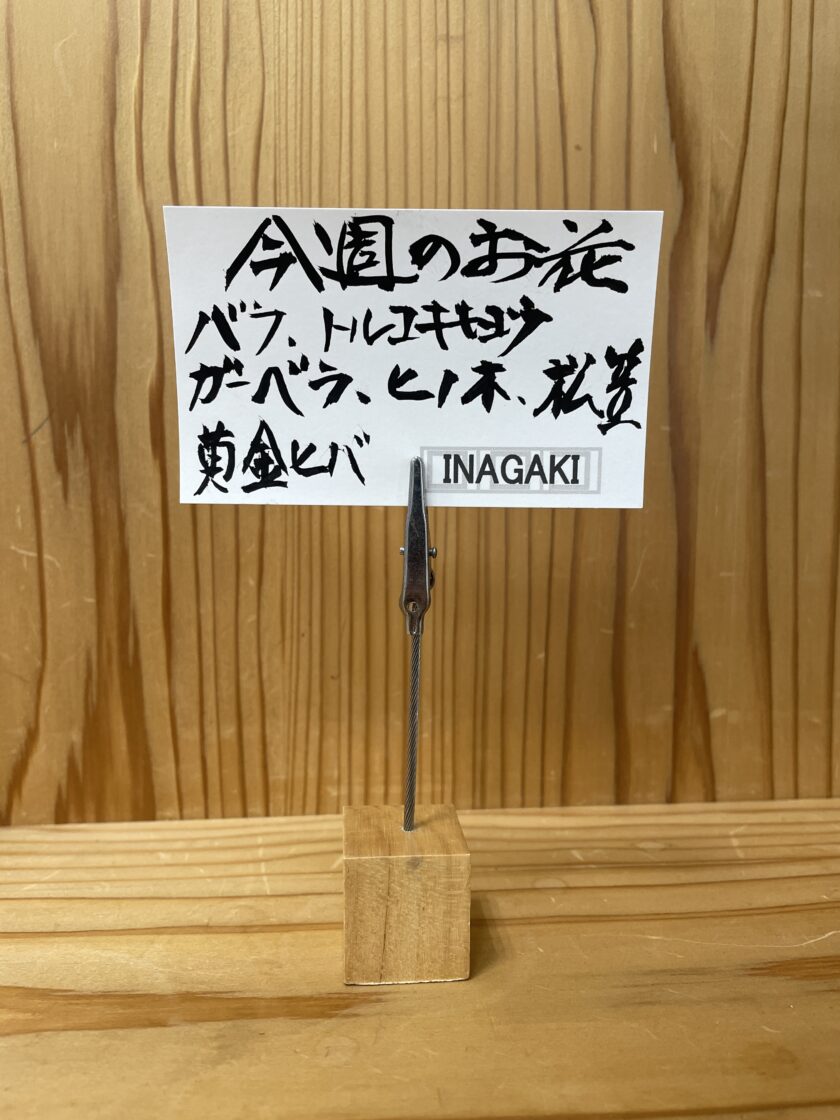 今週のお花
バラ、トルコキキョウ
ガーベラ、ヒノ木、松笠
黄金ヒバ
INAGAKI